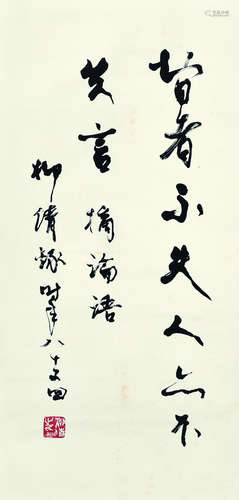 智者不失人亦不
失言 摘論語
柳倩録 时年八十又四